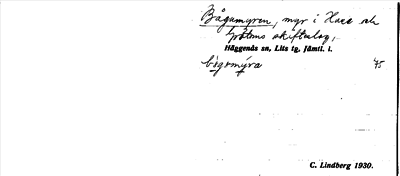 Bågamyren, myr i Hara och
Gröttns skifteslag,
Häggenås sn, Lits tg, Jämtl. l.
bògomýra 45
C. Lindberg 1930.